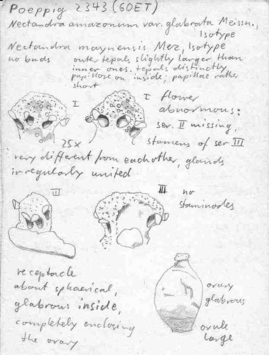 Poeppig 2343 (GOET)
Nectandra amazonum var. glabrata Meissn., Isotype
Nectandra maynensis Mez, Isotype
no buds outer tepals slightly larger than
inner ones, tepals distinctly
papillose on inside, papillae rather
short
I. I. flower
abnormous:
ser. II missing,
25x stamens of ser III
very different from eachother, glands
irregularly united
III III no
staminodes
receptacle
about sphaerical,
glabrous inside,
completely enclosing
the ovary
ovary
glabrous
ovule
large